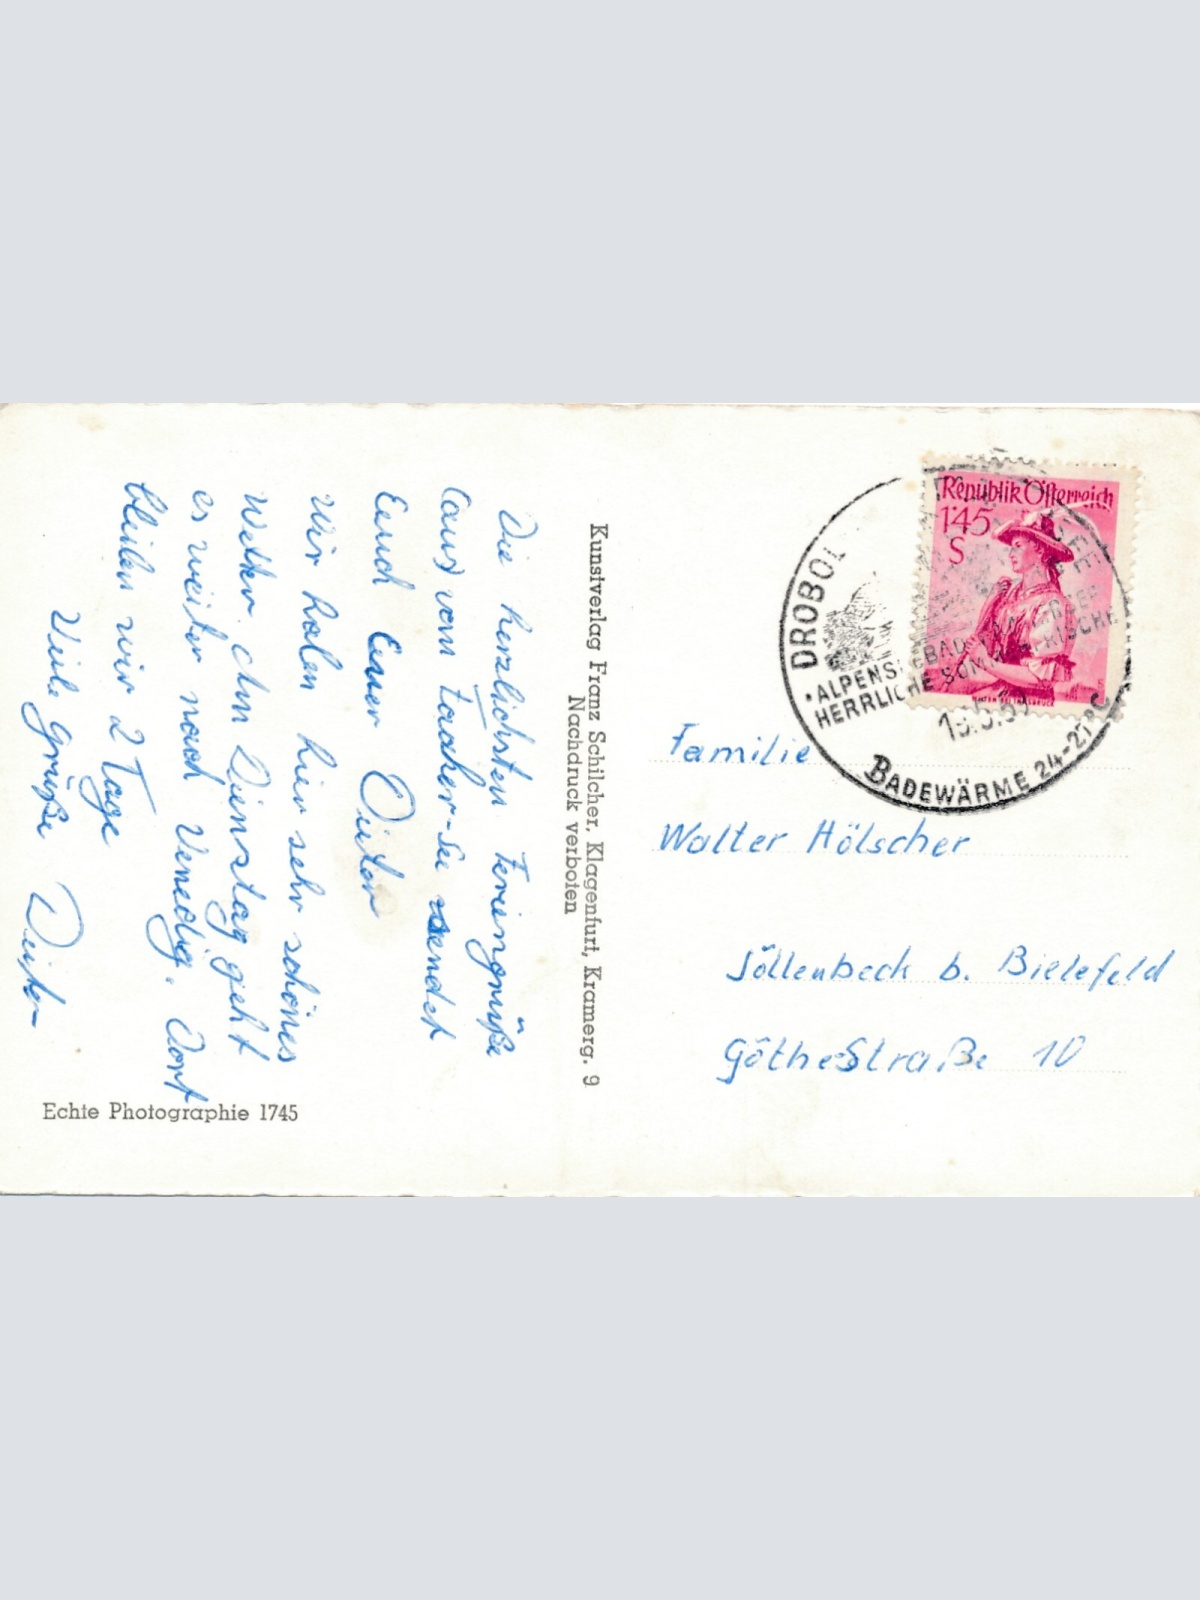 Die herzlichsten Feriengrüße
(aus) vom Faaker-See sendet
Euch Euer Dieter
Wir haben hier sehr schönes
Wetter. Am Dienstag geht
es weiter nach Venedig. Dort
bleiben wir 2 Tage
Viele Grüße Dieter
Echte Photographie 1745
Kunstverlag Franz Schilcher, Klagenfurt, Kramerg. 9
Nachdruck verboten
Republik Österreich
1'45
S
DROBOL
SEE
ALPENSEEBAD
HERRLICHE SOMMERFRISCHE
BADEWÄRME 24-27°C
Familie
Walter Hölscher
Jöllenbeck b. Bielefeld
Göthestraße 10